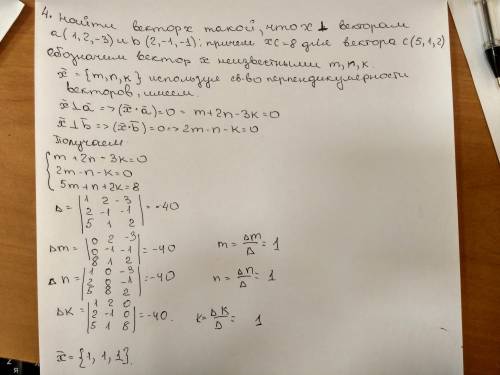 4. Найти вектор x такой, что x ⊥ векторам
a(1,2,-3) и b(2,-1,-1); причем xc=8 для вектора c(5,1,2)
обозначим вектор x неизвестными m,n,k.
x̄ = {m,n,k} используе св-во перпендикулярности
векторов, имеем.
x̄⊥ā => (x̄·ā)=0 = m+2n-3k=0
x̄⊥b̄ => (x̄·b̄)=0 => 2m-n-k=0
Получаем
{ m+2n-3k=0
2m-n-k=0
5m+n+2k=8
Δ = |1 2 -3
2 -1 -1
5 1 2| = -40
Δm = |0 2 -3
0 -1 -1
8 1 2| = -40 m = Δm/Δ = 1
Δn = |1 0 -3
2 0 -1
5 8 2| = -40 n = Δn/Δ = 1
Δk = |1 2 0
2 -1 0
5 1 8| = -40. k = Δk/Δ = 1
x̄ = {1, 1, 1}.